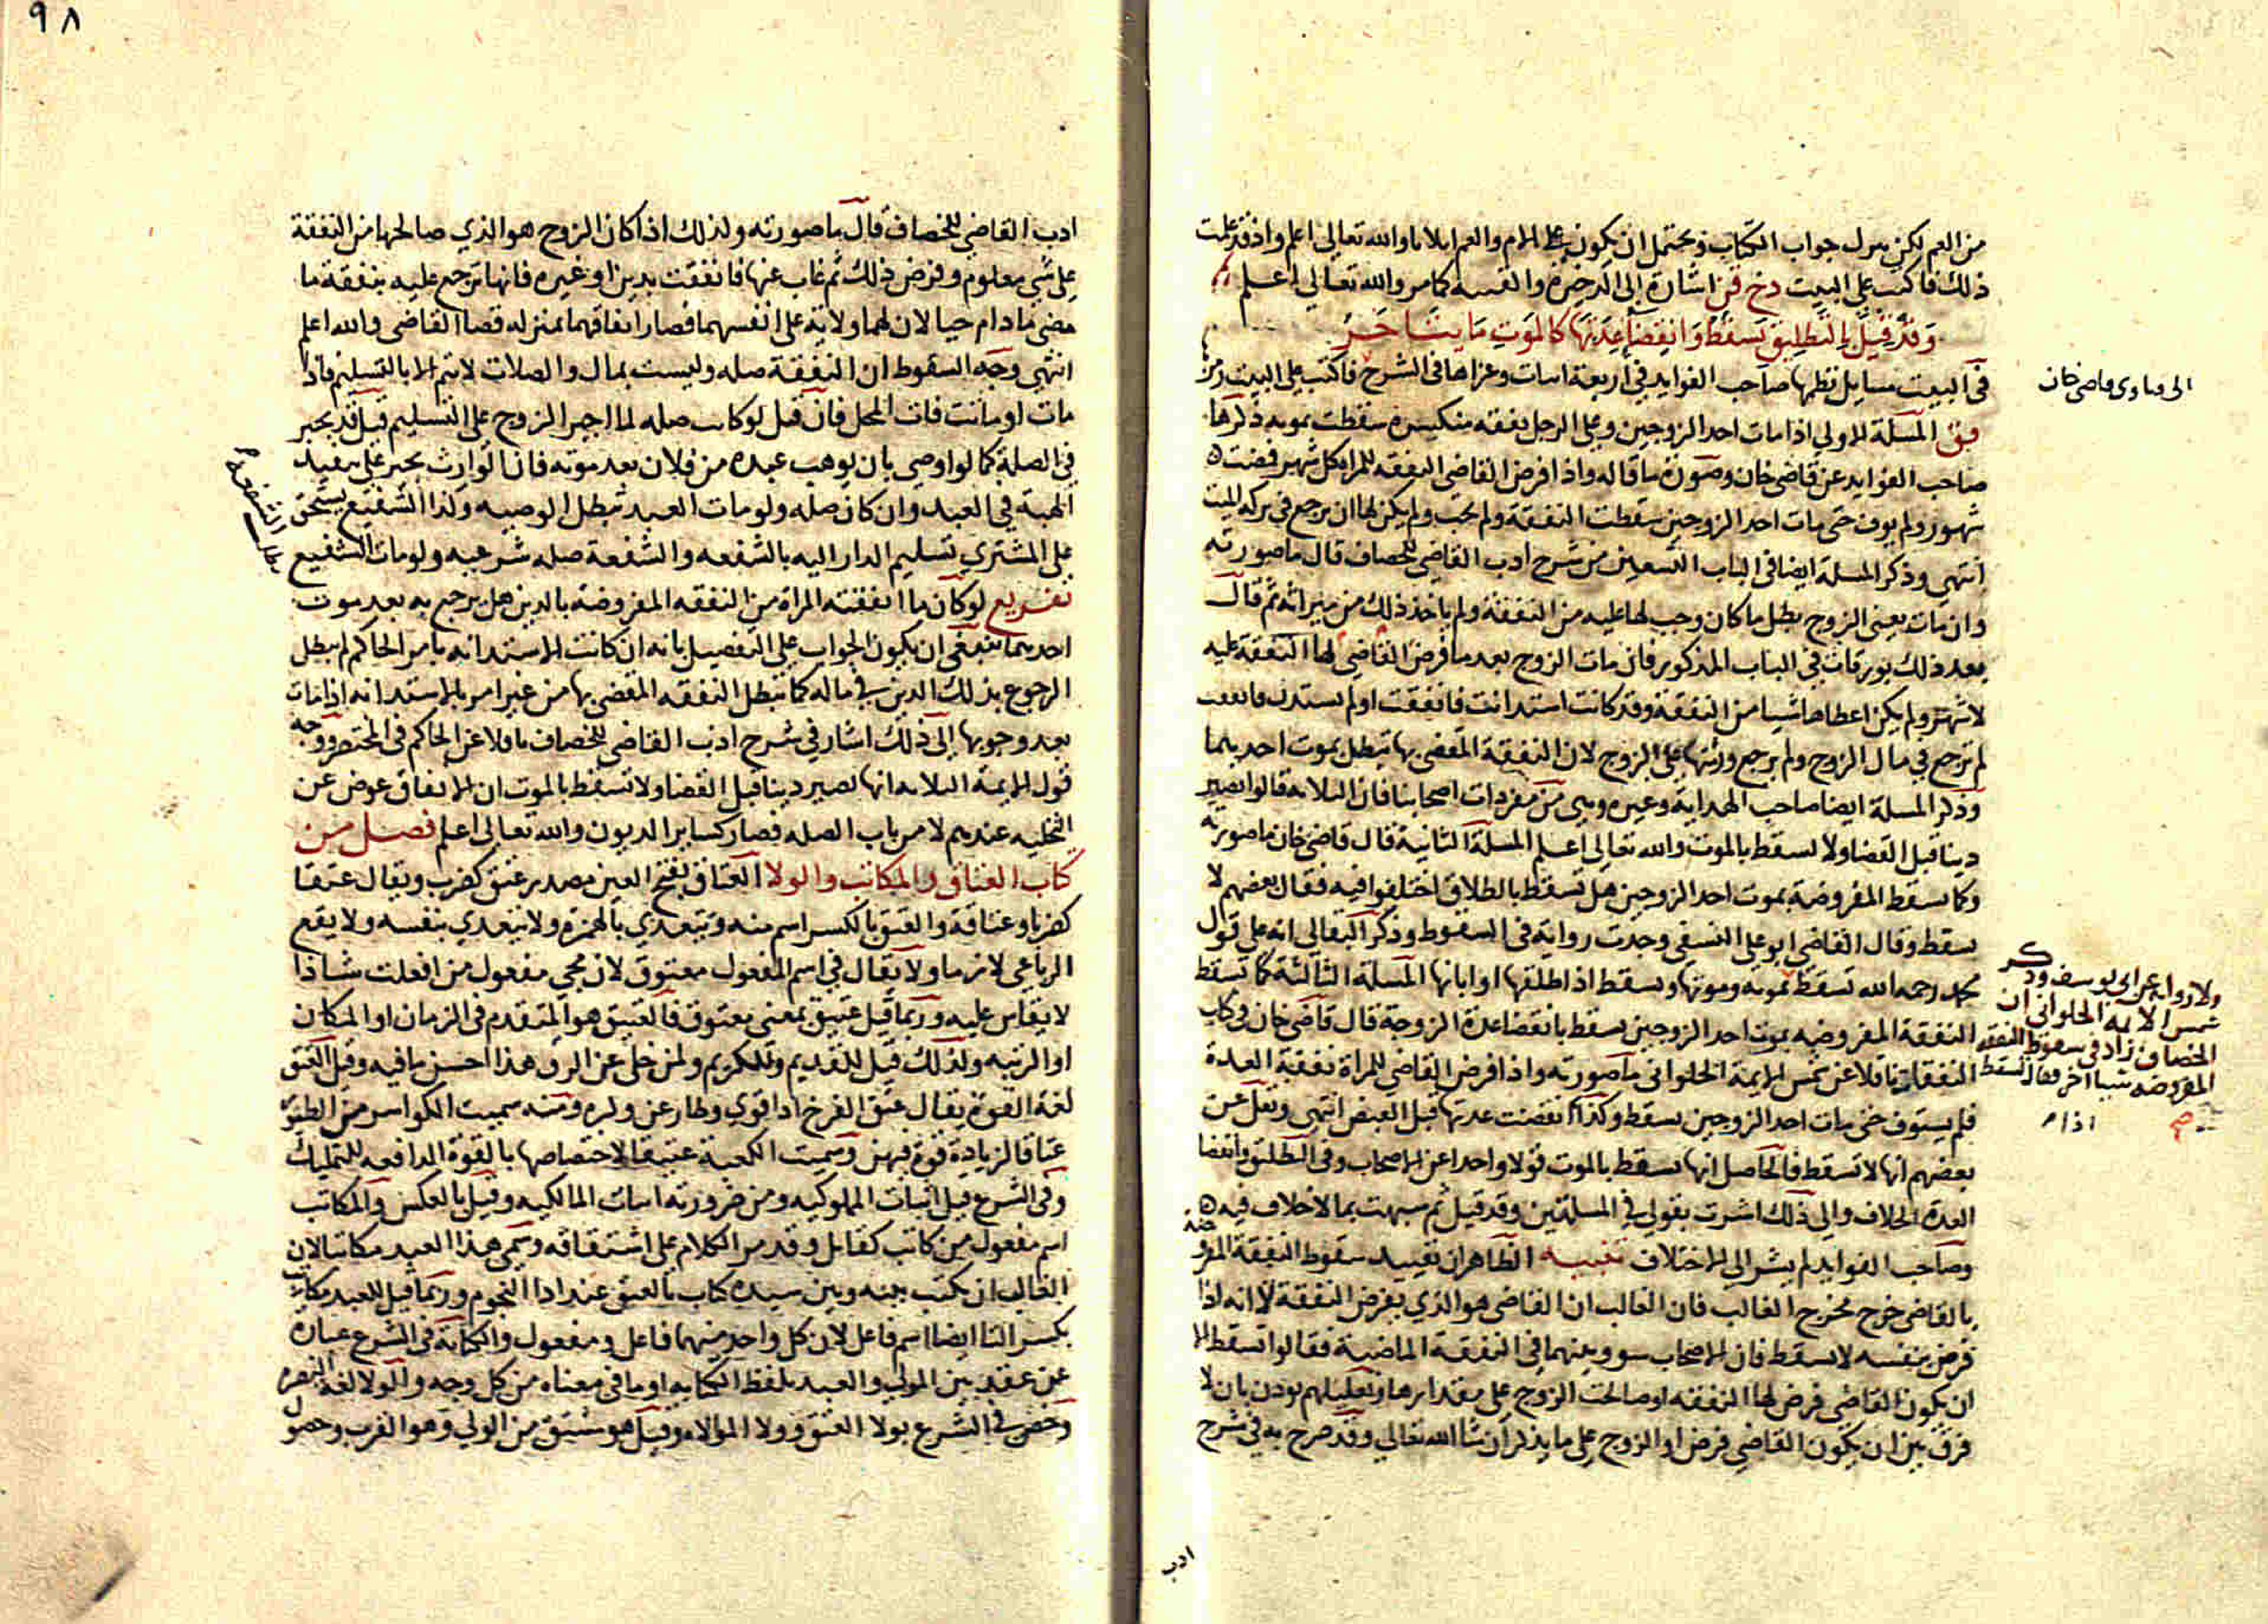 من العم لكن يترك جواب الكتاب ويحتمل ان يكون على الام والعم ابلاما والله تعالى اعلم واذ قد علمت
ذلك فاكتب على البيت دخ قن اشارة الى الذخيرة والقنيه كما مر والله تعالى اعلم
وقد قيل بالتطليق تسقط وانقضا عدتها كالموت ما يتاخر
في البيت مسايل نظمها صاحب الفوايد في اربعة ابيات وعزاها في الشرح فاكتب على البيت رمز
الى فتاوى قاضي خان
فق المسلة الاولى اذا مات احد الزوجين وعلى الرجل نفقه منكسره سقطت بموته ذكرها
صاحب الفوايد عن قاضي خان وصورة ما قاله واذا فرض القاضي النفقه للمراة كل شهر فمضت
شهور ولم يوف حتى مات احد الزوجين سقطت النفقة ولم تجب ولم يكن لها ان ترجع في تركه الميت
انتهى وذكر المسلة ايضا في الباب التسعين من شرح ادب القاضي للخصاف قال ما صورته
وان مات يعني الزوج بطل ما كان وجب لها عليه من النفقة ولم ياخذ ذلك من ميراثه ثم قال
بعد ذلك بورقات في الباب المذكور فان مات الزوج بعد ما فرض القاضي لها النفقة عليه
لاشهر ولم يكن اعطاها شييا من النفقة وقد كانت استدانت فانفقت او لم تستدن فانفقت
لم ترجع في مال الزوج ولم يرجع ورثتها على الزوج لان النفقة المقضي بها تبطل بموت احد يهما
وذكر المسلة ايضا صاحب الهداية وغيره وهي من مفردات اصحابنا فان الثلاثه قالوا تصير
دينا قبل القضا ولا تسقط بالموت والله تعالى اعلم المسلة الثانية قال قاضي خان ما صورته
وكما تسقط المفروضة بموت احد الزوجين هل تسقط بالطلاق اختلفوا فيه فقال بعضهم لا
تسقط وقال القاضي ابو على النسفي وجدت رواية في السقوط وذكر البقالي انه على قول
محمد رحمه الله تسقط بموته وموتها وتسقط اذا طلقها او ابانها المسلة الثالثة كما تسقط
ولا رواية عن ابي يوسف وذكر
شمس الايمة الحلواني ان
الخصاف زاد في سقوط النفقه
المفروضه شييا اخر فقال تسقط
صح
اذا م
النفقة المفروضه بموت احد الزوجين تسقط بانقضا عدة الزوجة قال قاضي خان في كتاب
النفقات ناقلا عن شمس الايمة الحلواني ما صورته واذا فرض القاضي للمراة نفقة العدة
فلم يستوف حتى مات احد الزوجين تسقط وكذا انقضت عدتها قبل القبض انتهى ونقل عن
بعضهم انها لا تسقط فالحاصل انها تسقط بالموت قولا واحدا عن الاصحاب وفي الطلاق وانقضا
العدة الخلاف والى ذلك اشرت بقولي في المسلتين وقد قيل ثم شبهت بما لا خلاف فيه
وصاحب الفوايد لم يشر الى الاختلاف تنبيه الظاهر ان تقييد سقوط النفقة المفروضة
بالقاضي خرج مخرج الغالب فان الغالب ان القاضي هو الذي يفرض النفقة لا انه اذا
فرض بنفسه لا تسقط فان الاصحاب سووا بينهما في النفقة الماضية فقالوا تسقط الا
ان يكون القاضي فرض لها النفقه او صالحت الزوج على مقدارها وتعليلهم يوذن بان لا
فرق بين ان يكون القاضي فرض او الزوج على ما يذكر ان شا الله تعالى وقد صرح به في شرح
ادب
٩٨
ادب القاضي للخصاف قال ما صورته ولذلك اذا كان الزوج هو الذي صالحها من النفقة
على شي معلوم وفرض ذلك ثم غاب عنها فانفقت بدين او غيره فانها ترجع عليه بنفقة ما
مضى ما دام حيا لان لهما ولاية على انفسهما فصار اتفاقهما بمنزله قضا القاضي والله اعلم
انتهى وجه السقوط ان النفقة صله وليست بمال والصلات لا تتم الا بالتسليم فاذا
مات او ماتت فات المحل فان قيل لو كانت صله لما اجبر الزوج على التسليم قيل قد يجبر
في الصلة كما لو اوصى بان يوهب عبده من فلان بعد موته فان الوارث يجبر على تنفيد
الهبة في العبد وان كان صله ولو مات العبد تبطل الوصيه وكذا الشفيع يستحق
على المشتري تسليم الدار اليه بالشفعه والشفعة صله شرعيه ولو مات الشفيع
بطلت الشفعة م
تفريع لو كان ما انفقته المراة من النفقه المفروضة بالدين هل يرجع به بعد موت
احدهما ينبغي ان يكون الجواب على التفصيل بانه ان كانت الاستدانه بامر الحاكم لم يبطل
الرجوع بذلك الدين في ماله كما تبطل النفقه المقضي بها من غير امر بالاستدانه اذا مات
بعد وجوبها الى ذلك اشار في شرح ادب القاضي للخصاف ناقلا عن الحاكم في المختصر ووجه
قول الايمة الثلاثه انها تصير دينا قبل القضا ولا تسقط بالموت ان الانفاق عوض عن
التخليه عندهم لا من باب الصله فصار كساير الديون والله تعالى اعلم فصل من
كتاب العتاق والمكاتب والولا العتاق بفتح العين مصدر عتق كضرب ويقال عتقا
كضربا وعتاقة والعتق بالكسر اسم منه ويتعدي بالهمزة ولا يتعدي بنفسه ولا يقع
الرباعي لازما ولا يقال في اسم المفعول معتوق لان مجي مفعول من افعلت شاذا
لا يقاس عليه وربما قيل عتيق بمعنى معتوق فالعتيق هو المتقدم في الزمان او المكان
او الرتبه ولذلك قيل للقديم وللكريم ولمن خلى عن الرق هذا احسن ما فيه وقيل العتق
لغة القوة يقال عتق الفرخ اذا قوي وطار عن وكره ومنه سميت الكواسر من الطير
عتاقا لزيادة قوة فيهن وسميت الكعبة عتيقا لاختصاصها بالقوة الدافعه للتمليك
وفي الشرع قيل اثبات المملوكيه ومن ضرورته اثبات المالكيه وقيل بالعكس والمكاتب
اسم مفعول من كاتب كقاتل وقد مر الكلام على اشتقاقه وسمي هذا العبد مكاتبا لان
الغالب ان يكتب بينه وبين سيده كتاب بالعتق عند ادا النجوم وربما قيل للعبد مكاتب
بكسر التا ايضا اسم فاعل لان كل واحد منهما فاعل ومفعول والكتابة في الشرع عبارة
عن عقد بين المولى والعبد بلفظ الكتابه او ما في معناه من كل وجه والولا لغة النصره
وخص في الشرع بولا العتق وولا الموالاه وقيل هو مشتق من الولي وهو القرب وحصول